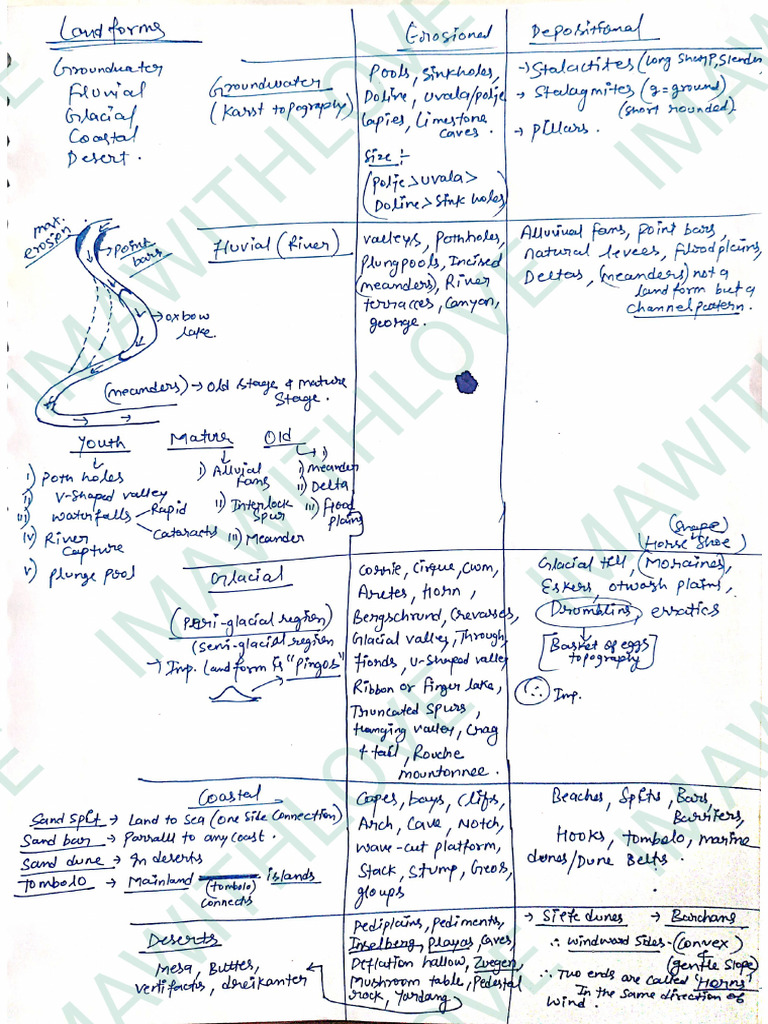 Landforms
Erosional
Depositional
Groundwater
Fluvial
Glacial
Coastal
Desert.
Groundwater
(Karst topography)
Pools, sinkholes,
Doline, uvala/polje
Lapies, Limestone
caves.
Size :-
(Polje>uvala>
Doline>Sink holes)
→ Stalactites (long sharp, Slender
→ Stalagmites (g=ground)
(short rounded)
→ Pillars.
max.
erosion
point
bars
oxbow
lake.
(meanders) → Old stage & mature
Stage.
Fluvial (River)
valleys, Potholes,
Plungpools, Incised
(meanders), River
terraces, Canyon,
george.
Alluvival fans, point bars,
natural levees, floodplains,
Deltas, (meanders) not a
land form but a
channel pattern.
Youth
i) Poth holes
ii) V-shaped valley
iii) Waterfalls
Rapid
Cataracts
iv) River
Capture
v) plunge pool
Mature
i) Alluvial
Fans
ii) Interlock
Spur
iii) Meander
Old
i)
i) Meander
ii) Delta
iii) Flood
plains
Glacial
(Peri-glacial region)
(Semi-glacial region
→ Imp. Landform is "Pingos"
Corrie, Cirque, Cwm,
Aretes, Horn,
Bergschrund, Crevasses,
Glacial valley, Through,
Fiords, U-shaped valley
Ribbon or Finger lake,
Truncated Spurs,
Hanging valley, Crag
& tail, Rouche
mountonnee.
(Shape)
(Horse Shoe)
Glacial till, (Moraines),
Eskers, otwash plains,
Drumblins, erratics
[Basket of eggs
topography]
∴ Imp.
Coastal
Sand split → Land to Sea (One Side Connection)
Sand bar → Parrall to any coast.
Sand dune → In deserts
Tombolo → Mainland islands
(tombolo)
connects
Capes, bays, Clifs,
Arch, Cave, Notch,
wave-cut platform,
Stack, Stump, Geos,
gloups
Beaches, Spits, Bars,
Barriers,
Hooks, tombolo, marine
dunes/Dune Belts.
Deserts
Mesa, Buttes,
vertifacts, dreikanter
Pediplains, Pediments,
Inselberg, playas, caves,
Deflation hallow, Zuegen,
Mushroom table, Pedestal
rock, Yardang
→ Sief dunes → Barchans
∴ windward sides - (convex)
(gentle slope)
∴ Two ends are called 'Horns'
In the same direction of
wind.
IMAWITHLOVE
IMAWITHLOVE
IMAWITHLOVE
IMAWITHLOVE
IMAWITHLOVE